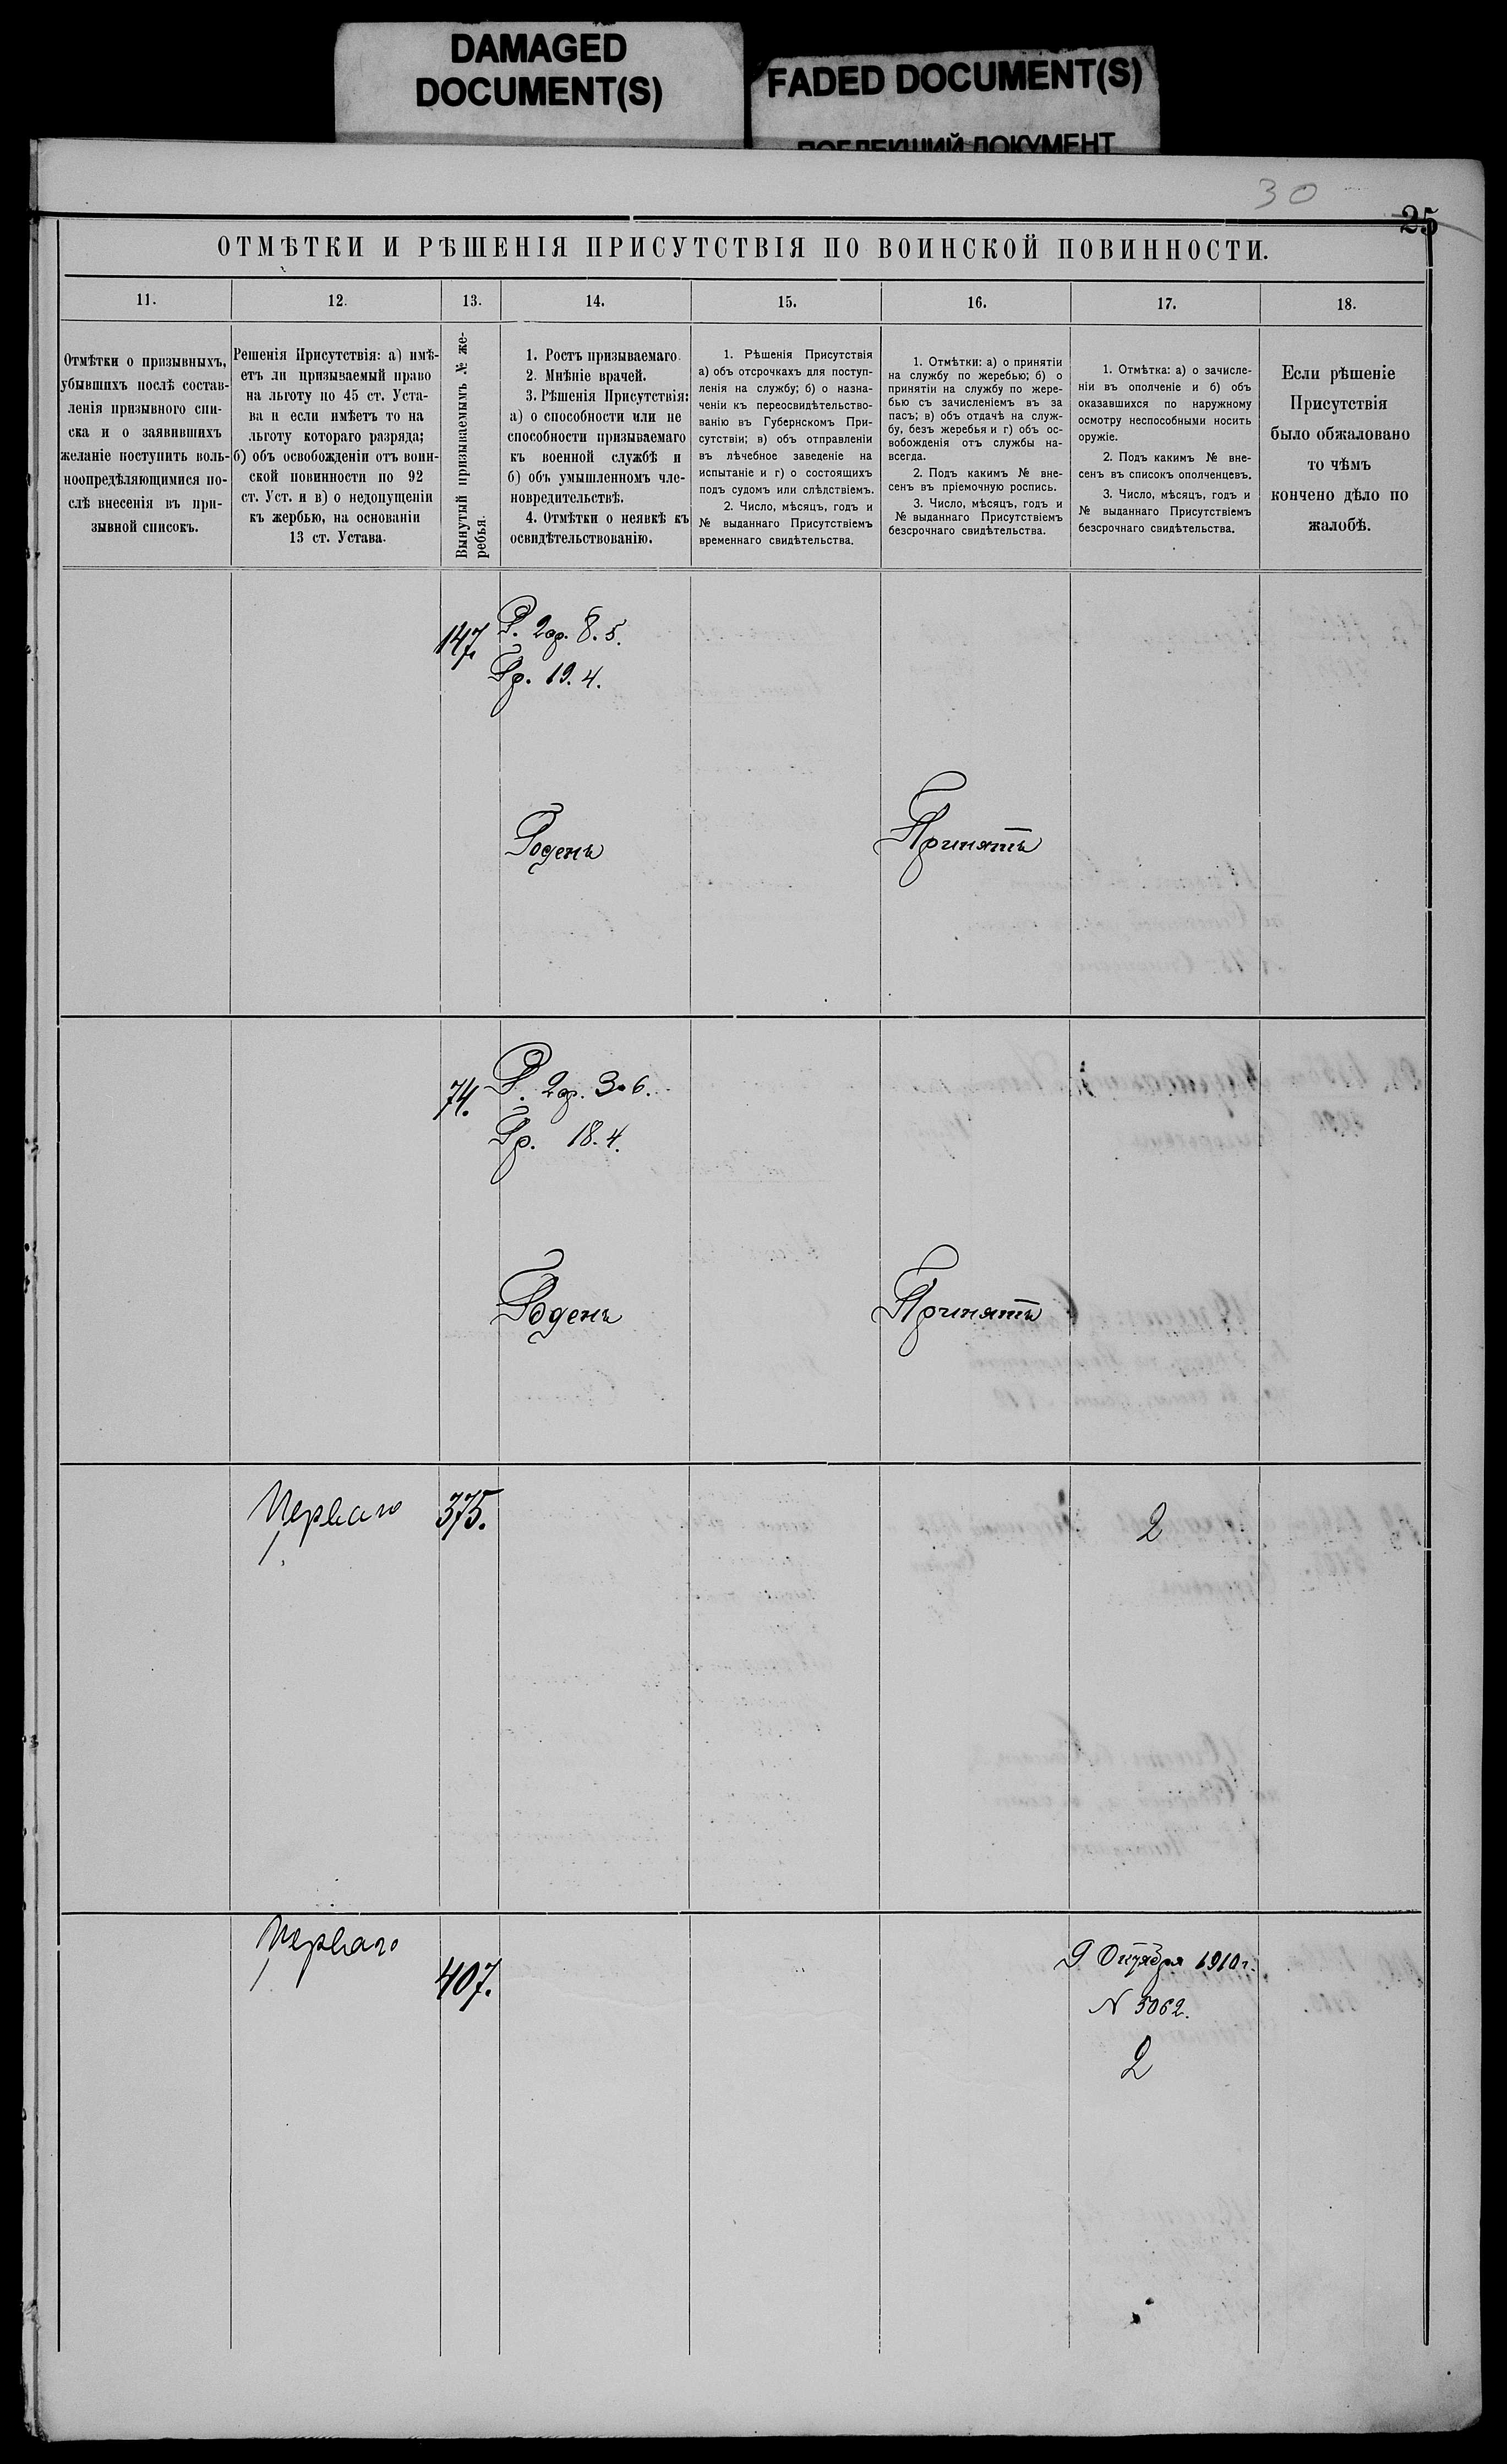 DAMAGED
DOCUMENT(S)
FADED DOCUMENT(S)
ПОБЛЕКШИЙ ДОКУМЕНТ
30
25
ОТМѢТКИ И РѢШЕНІЯ ПРИСУТСТВІЯ ПО ВОИНСКОЙ ПОВИННОСТИ.
11.
12.
13.
14.
15.
16.
17.
18.
Отмѣтки о призывныхъ,
убывшихъ послѣ состав-
ленія призывного спи-
ска и о заявившихъ
желаніе поступить воль-
ноопредѣляющимися по-
слѣ внесенія въ при-
зывной списокъ.
Решенія Присутствія: а) имѣ-
етъ ли призываемый право
на льготу по 45 ст. Уста-
ва и если имѣетъ то на
льготу котораго разряда;
б) объ освобожденіи отъ воин-
ской повинности по 92
ст. Уст. и в) о недопущеніи
къ жербью, на основаніи
13 ст. Устава.
Вынутый призываемымъ № же-
ребья.
1. Ростъ призываемаго.
2. Мнѣніе врачей.
3. Рѣшенія Присутствія:
а) о способности или не
способности призываемаго
къ военной службѣ и
б) объ умышленномъ чле-
новредительствѣ.
4. Отмѣтки о неявкѣ къ
освидѣтельствованію.
1. Рѣшенія Присутствія
а) объ отсрочкахъ для поступ-
ленія на службу; б) о назна-
ченіи къ переосвидѣтельство-
ванію въ Губернскомъ При-
сутствіи; в) объ отправленіи
въ лѣчебное заведеніе на
испытаніе и г) о состоящихъ
подъ судомъ или слѣдствіемъ.
2. Число, мѣсяцъ, годъ и
№ выданнаго Присутствіемъ
временнаго свидѣтельства.
1. Отмѣтки: а) о принятіи
на службу по жеребью; б) о
принятіи на службу по жере-
бью съ зачисленіемъ въ за
пасъ; в) объ отдачѣ на служ-
бу, безъ жеребья и г) объ ос-
вобожденія отъ службы на-
всегда.
2. Подъ какимъ № вне-
сенъ въ пріемочную роспись.
3. Число, мѣсяцъ, годъ и
№ выданнаго Присутствіемъ
безсрочнаго свидѣтельства.
1. Отмѣтка: а) о зачисле-
ніи въ ополченіе и б) объ
оказавшихся по наружному
осмотру неспособными носить
оружіе.
2. Подъ какимъ № вне-
сенъ въ списокъ ополченцевъ.
3. Число, мѣсяцъ, годъ и
№ выданнаго Присутствіемъ
безсрочнаго свидѣтельства.
Если рѣшеніе
Присутствія
было обжаловано
то чѣмъ
кончено дѣло по
жалобѣ.
147.
Р. 2ар. 8.5.
Гр. 19.4.
Годенъ
Принятъ
74.
Р. 2ар. 3.6.
Гр. 18.4.
Годенъ
Принятъ
Перваго
375.
2
Перваго
407.
9 Октября 1910 г.
N 5062.
2